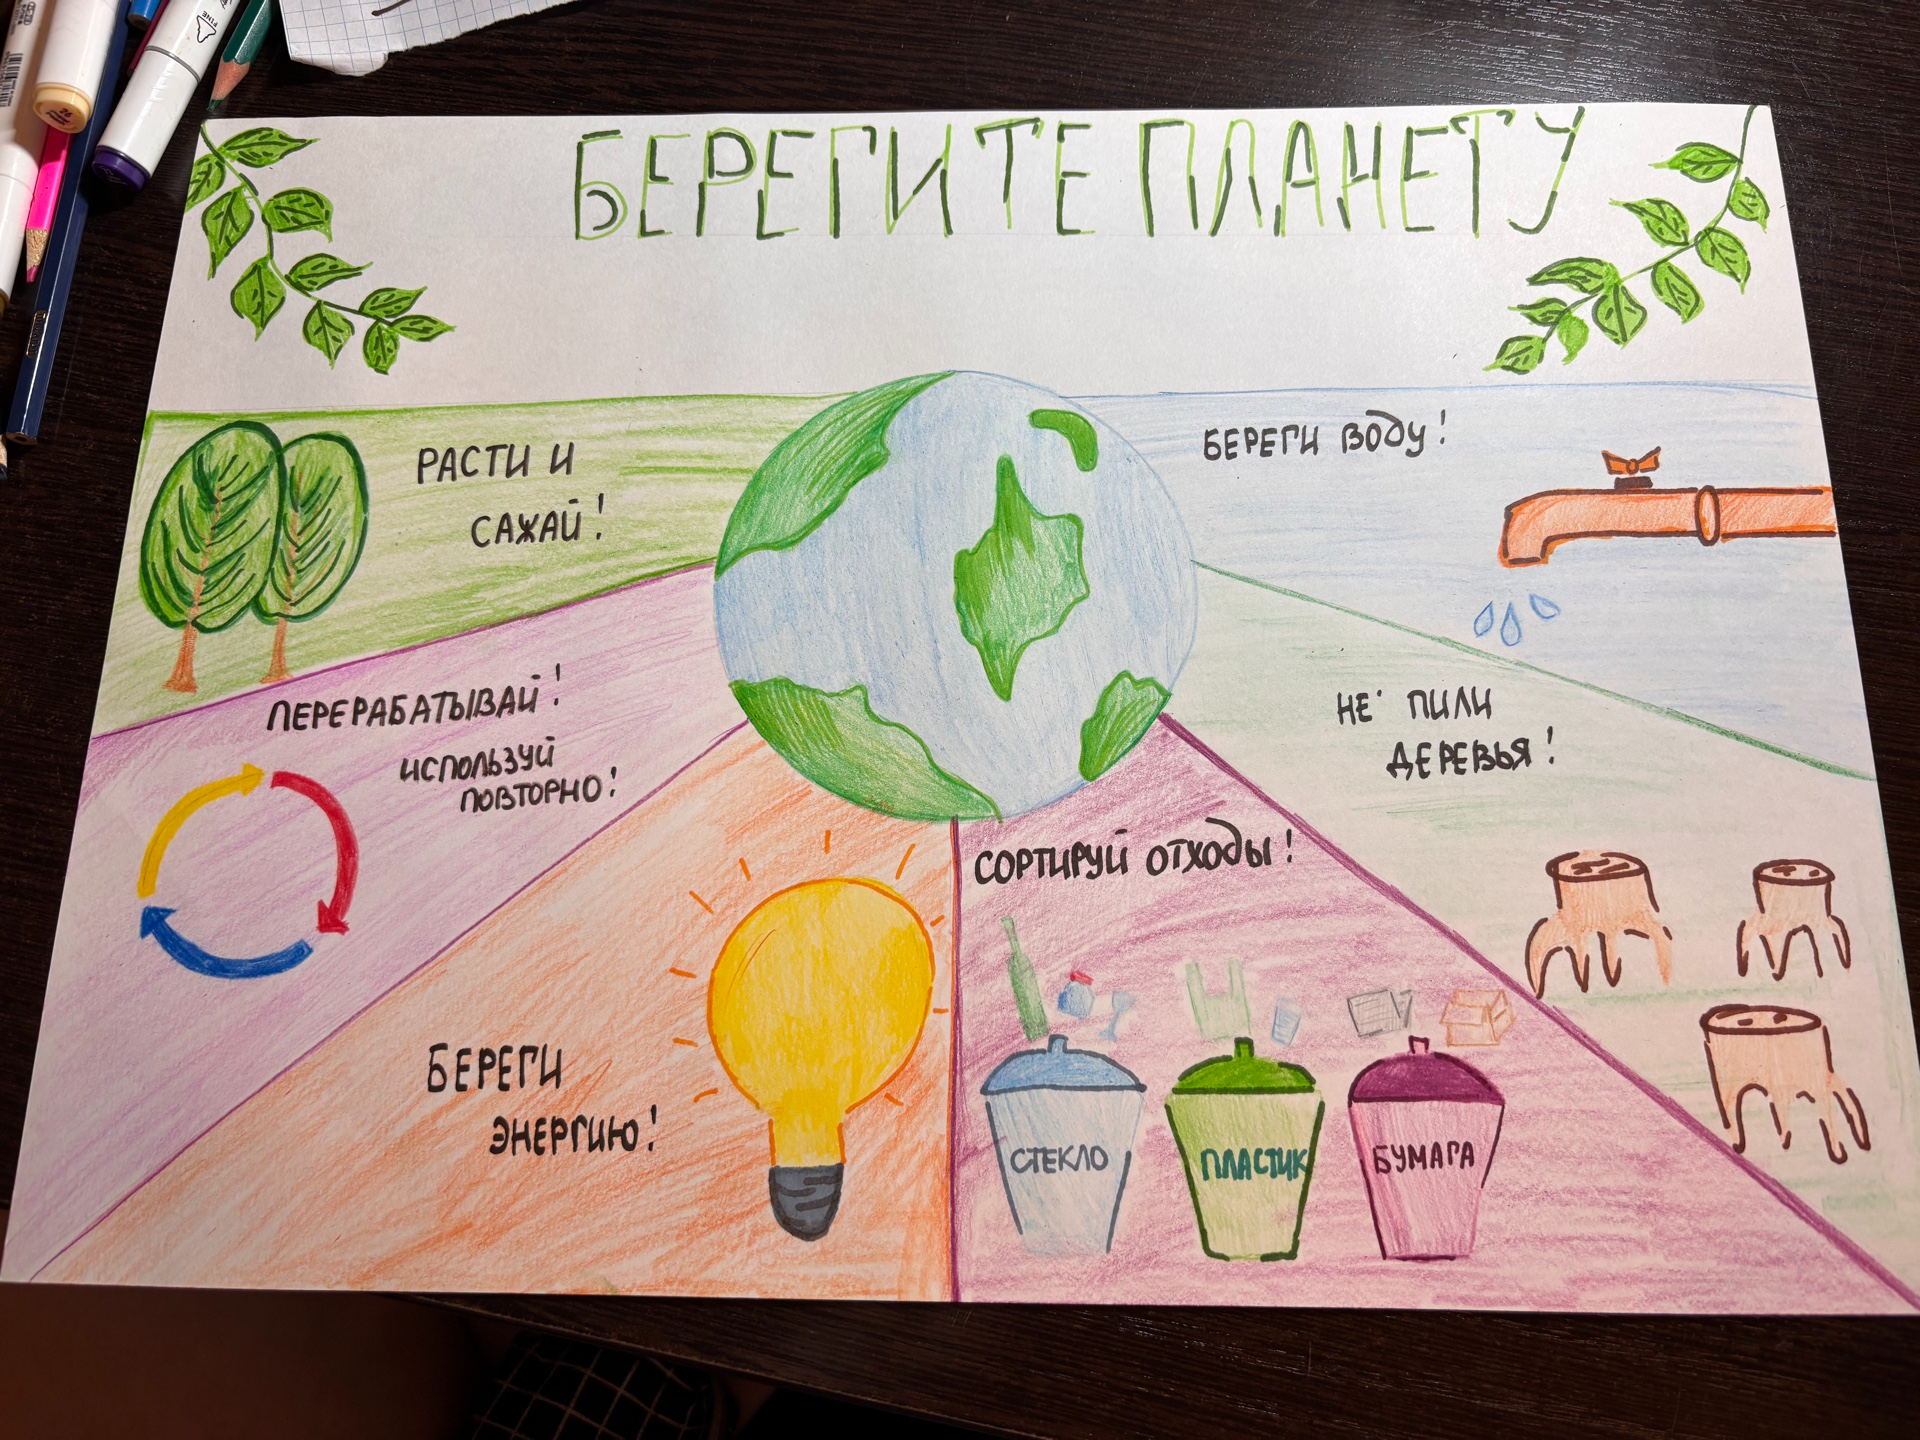 БЕРЕГИТЕ ПЛАНЕТУ
РАСТИ И
САЖАЙ!
БЕРЕГИ ВОДУ!
ПЕРЕРАБАТЫВАЙ!
ИСПОЛЬЗУЙ
ПОВТОРНО!
НЕ ПИЛИ
ДЕРЕВЬЯ!
БЕРЕГИ
ЭНЕРГИЮ!
СОРТИРУЙ ОТХОДЫ!
СТЕКЛО
ПЛАСТИК
БУМАГА
FINE